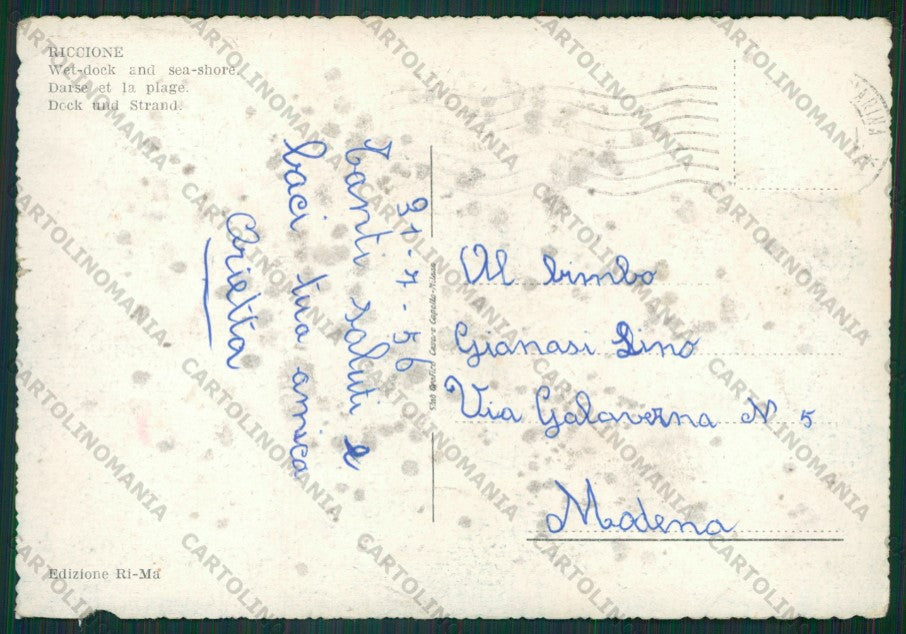 RICCIONE
Wet-dock and sea-shore.
Darse et la plage.
Dock und Strand.
31-7-56
Tanti saluti e
baci tua amica
Arietta
Al bimbo
Gianasi Lino
Via Galaverna N 5
Modena
Edizione Ri-Ma
CARTOLINOMANIA